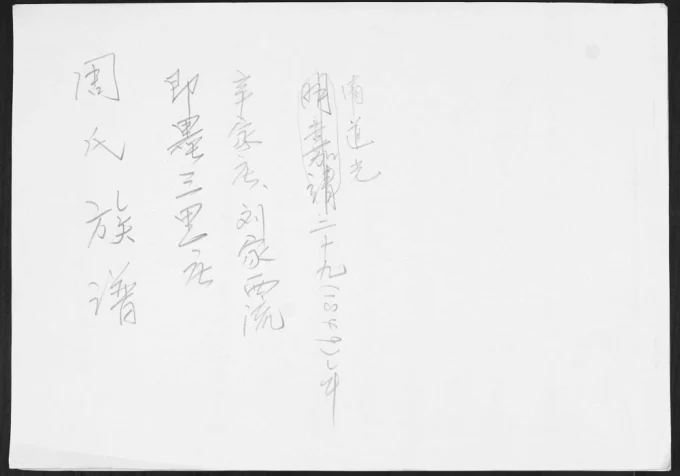 周氏族谱
即墨三里庄
辛家庄、刘家西流
明嘉靖二十九(1849)年
清道光